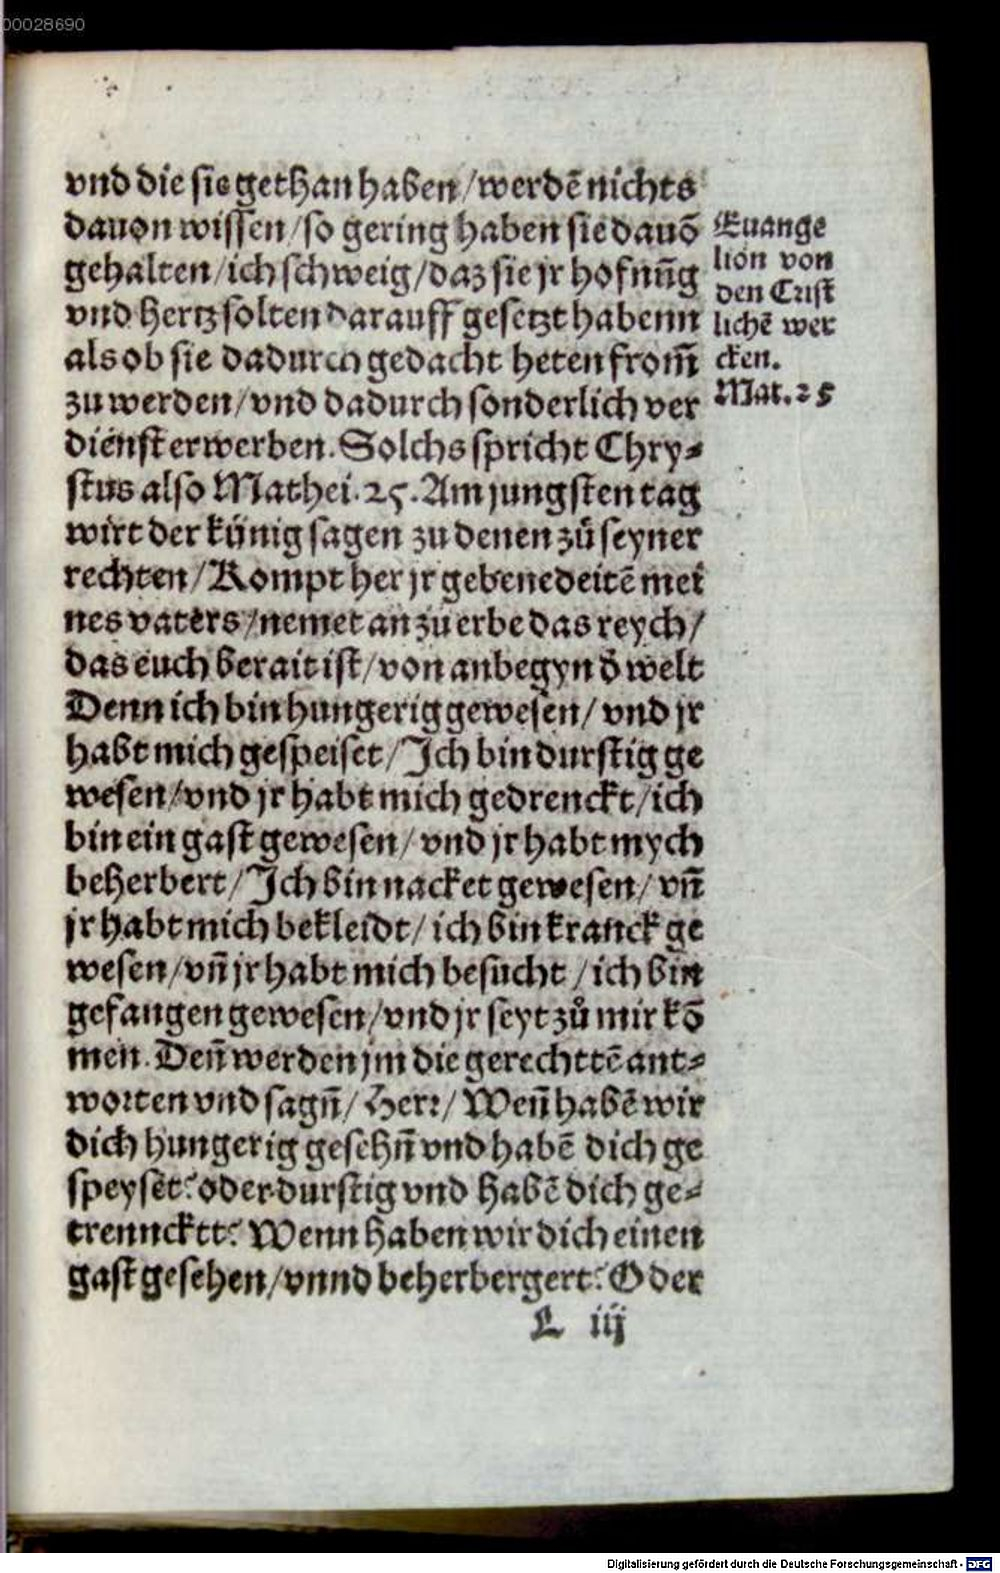 00028690
vnd die sie gethan haben/werdē nichts
dauon wissen/so gering haben sie dauō
gehalten/ich schweig/daz sie jr hofnūg
vnd hertz solten darauff gesetzt habenn
als ob sie dadurch gedacht heten from̄
zu werden/vnd dadurch sonderlich ver
dienst erwerben. Solchs spricht Chry-
stus also Mathei. 25. Am jungsten tag
wirt der künig sagen zu denen zů seyner
rechten/Kompt her jr gebenedeitē mei
nes vaters/nemet an zu erbe das reych/
das euch berait ist/von anbegyn d̄ welt
Denn ich bin hungerig gewesen/vnd jr
habt mich gespeiset/Ich bin durstig ge
wesen/vnd jr habt mich gedrenckt/ich
bin ein gast gewesen/vnd jr habt mych
beherbert/Ich bin nacket gewesen/vn̄
jr habt mich bekleidt/ich bin kranck ge
wesen/vn̄ jr habt mich besucht/ich bin
gefangen gewesen/vnd jr seyt zů mir kō
men. Den̄ werden jm die gerechttē ant-
worten vnd sagn̄/Herr/Wen̄ habē wir
dich hungerig gesehn̄ vnd habē dich ge
speyset? oder durstig vnd habē dich ge-
trenncktt? Wenn haben wir dich einen
gast gesehen/vnnd beherbergert? Oder
L iij
Euange
lion von
den Crist
lichē wer
cken.
Mat. 25
Digitalisierung gefördert durch die Deutsche Forschungsgemeinschaft - DFG